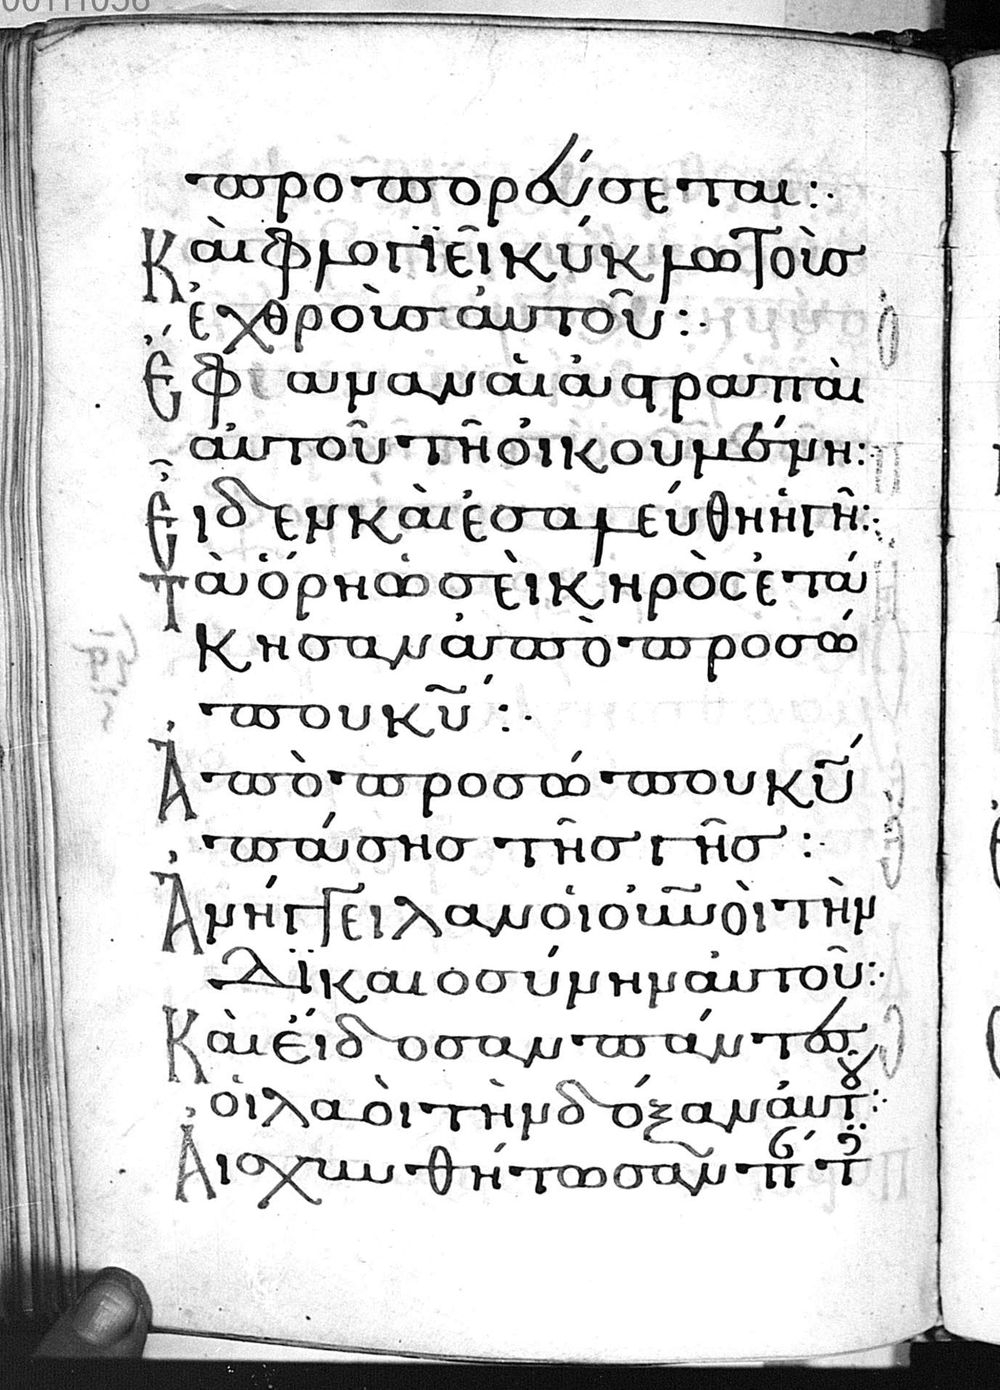 00111058
προπορεύσεται:.
Κὰι φλογϊεῖ κύκλω τοὺσ
ἐχθροὺσ ἀυτοῦ:.
Ἔφαναν ἁι ἀστραπὰι
ἀυτοῦ τῆ ὀικουμένη:.
Εἶδεν κὰι ἐσαλεύθη ἡ γῆ:.
Τὰ ὄρη ὡσὲι κηρὸς ἐτά
κησαν ἀπὸ προσώ
που κ̅υ̅:.
Ἀπὸ προσώπου κ̅υ̅
πάσησ τῆσ γῆσ:.
Ἀνήγγειλαν ὁι ὀυ̅νοὶ τὴν
δϊκαιοσύνην ἀυτοῦ:.
Κὰι ἔιδοσαν πάντεσ
ὁι λαὸι τὴν δόξαν ἀυτ(οῦ):.
Αἰσχυνθήτωσαν π(άντεσ) ὁ(ι)